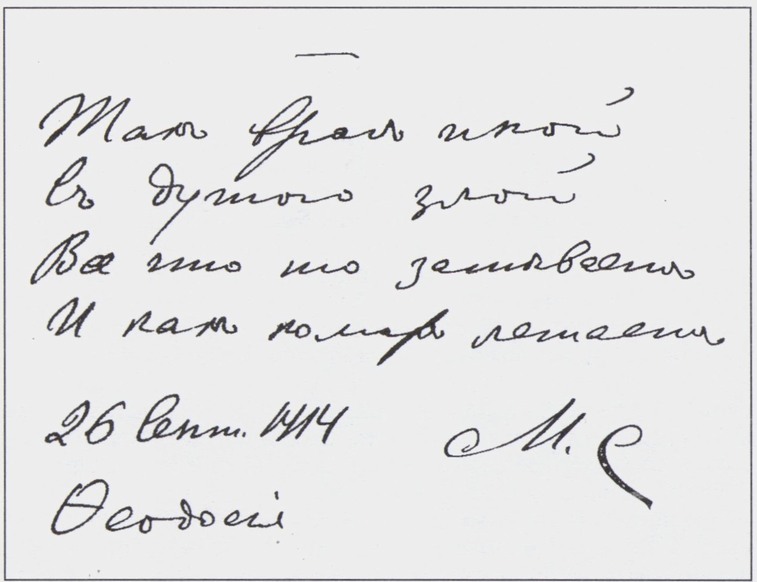 Такъ врагъ иной
Съ душою злой
Все что то затѣваетъ
И какъ комаръ летаетъ
26 Сент. 1914 М. С
Ѳеодосія